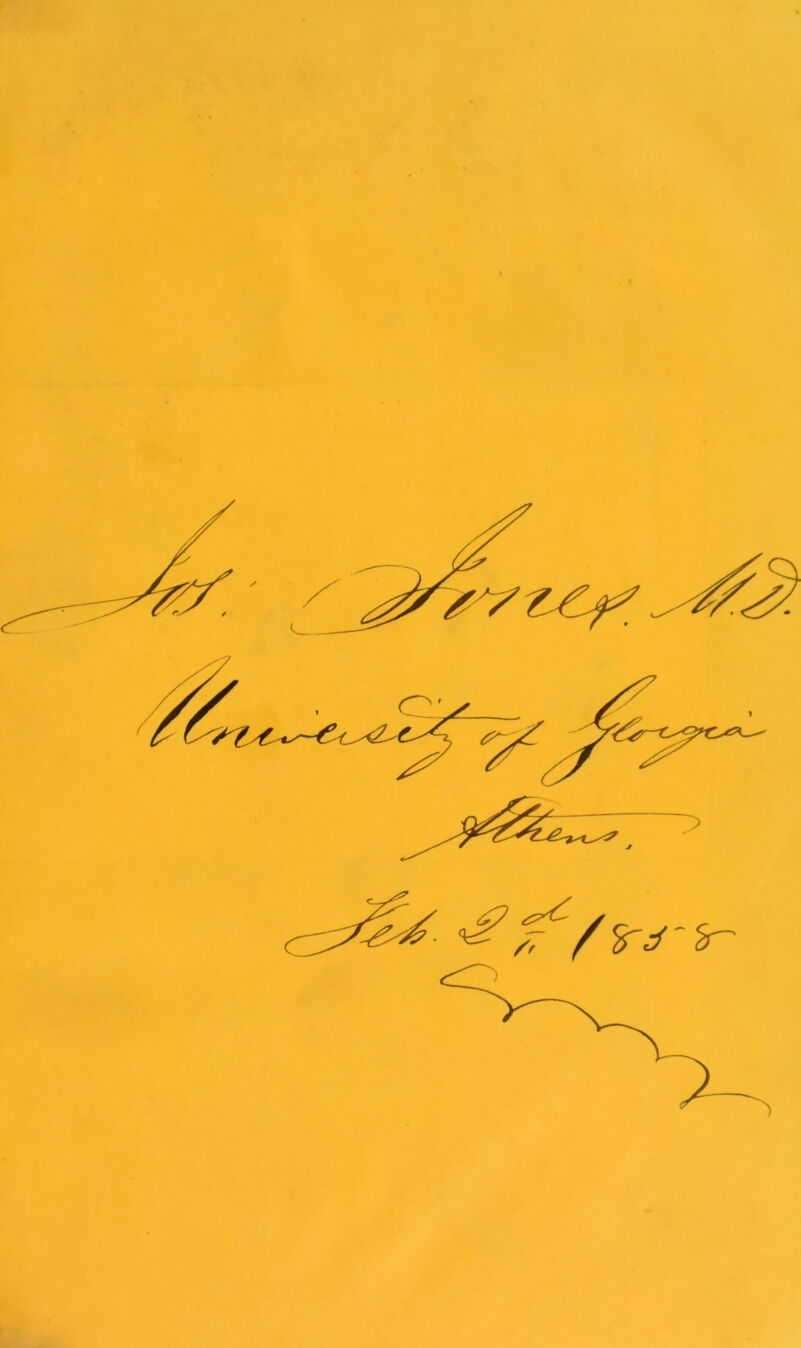 Jos: Jones. M.D.
University of Georgia
Athens.
Feb. 2d 1858